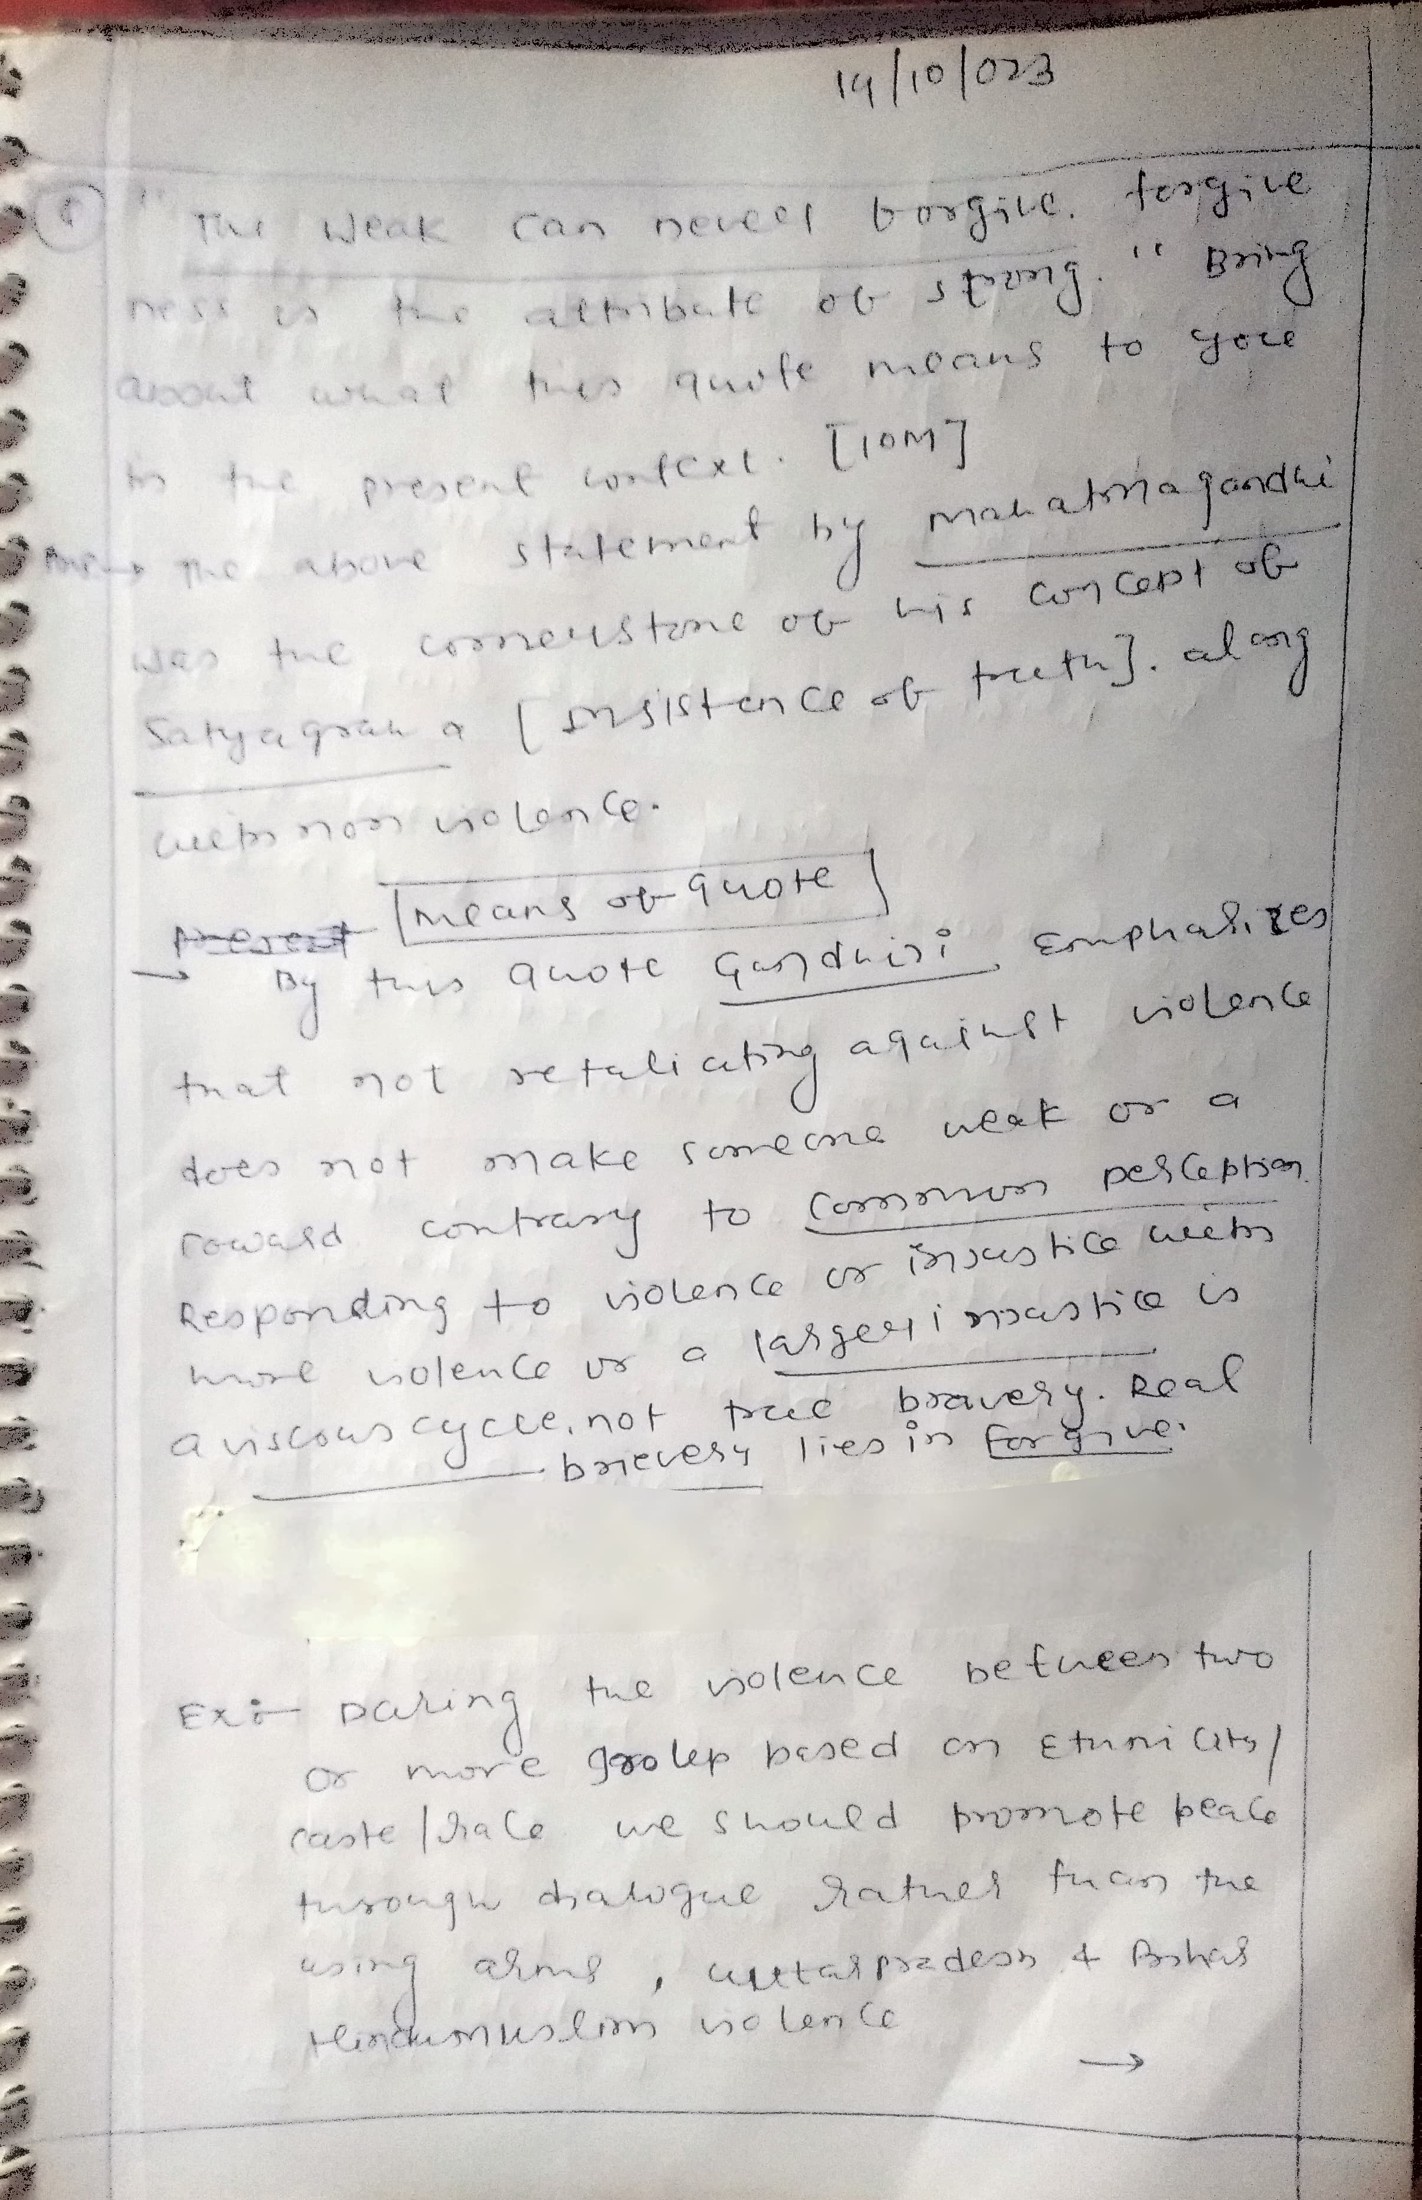 14/10/023
① "The weak can never forgive. forgive
ness is the attribute of strong." Bring
about what this quote means to you
in the present context. [10M]
the above statement by mahatma gandhi
was the cornerstone of his concept of
Satyagrah a [Insistence of truth]. along
with non violence.
means of quote
→ By this quote Gandhiji Emphasizes
that not retaliating against violence
does not make someone weak or a
coward contrary to common perception
Responding to violence or injustice with
more violence or a larger injustice is
a viscous cycle, not true bravery. Real
brievery lies in forgive.
Ex:- During the violence between two
or more group based on Ethnicity/
caste/race we should promote peace
through dialogue rather than the
using arms, uttarpradesh & Bihar
Hindumuslim violence
→